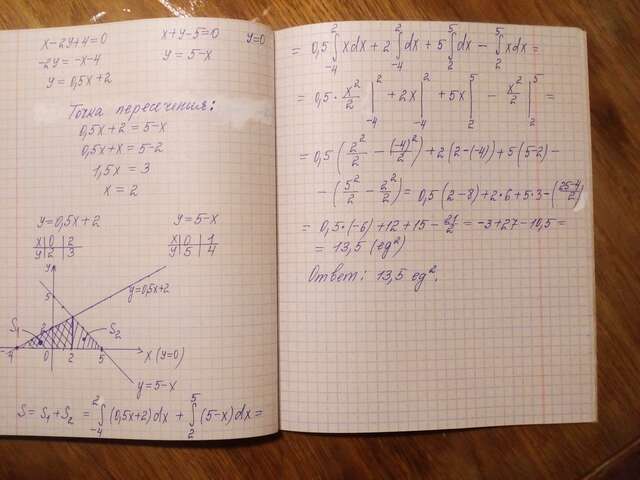 x-2y+4=0 x+y-5=0 y=0
-2y=-x-4 y=5-x
y=0,5x+2
Точка пересечения:
0,5x+2=5-x
0,5x+x=5-2
1,5x=3
x=2
y=0,5x+2 y=5-x
x|0|2 x|0|1
y|2|3 y|5|4
y
5
y=0,5x+2
S₁ 2 S₂
-4 0 2 5 x (y=0)
y=5-x
S=S₁+S₂ = ∫₋₄² (0,5x+2)dx + ∫₂⁵ (5-x)dx =
= 0,5 ∫₋₄² xdx + 2 ∫₋₄² dx + 5 ∫₂⁵ dx - ∫₂⁵ xdx =
= 0,5 · x²/2 |₋₄² + 2x |₋₄² + 5x |₂⁵ - x²/2 |₂⁵ =
= 0,5 (2²/2 - (-4)²/2) + 2(2-(-4)) + 5(5-2) -
- (5²/2 - 2²/2) = 0,5(2-8)+2·6+5·3-(25-4/2)
= 0,5·(-6)+12+15-21/2 = -3+27-10,5 =
= 13,5 (ед²)
Ответ: 13,5 ед².